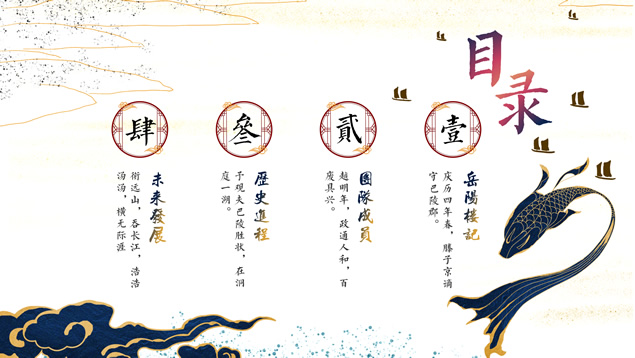 目录
壹
岳陽樓記
庆历四年春，滕子京谪
守巴陵郡。
貳
團隊成員
越明年，政通人和，百
废具兴。
叄
歷史進程
予观夫巴陵胜状，在洞
庭一湖。
肆
未来發展
衔远山，吞长江，浩浩
汤汤，横无际涯